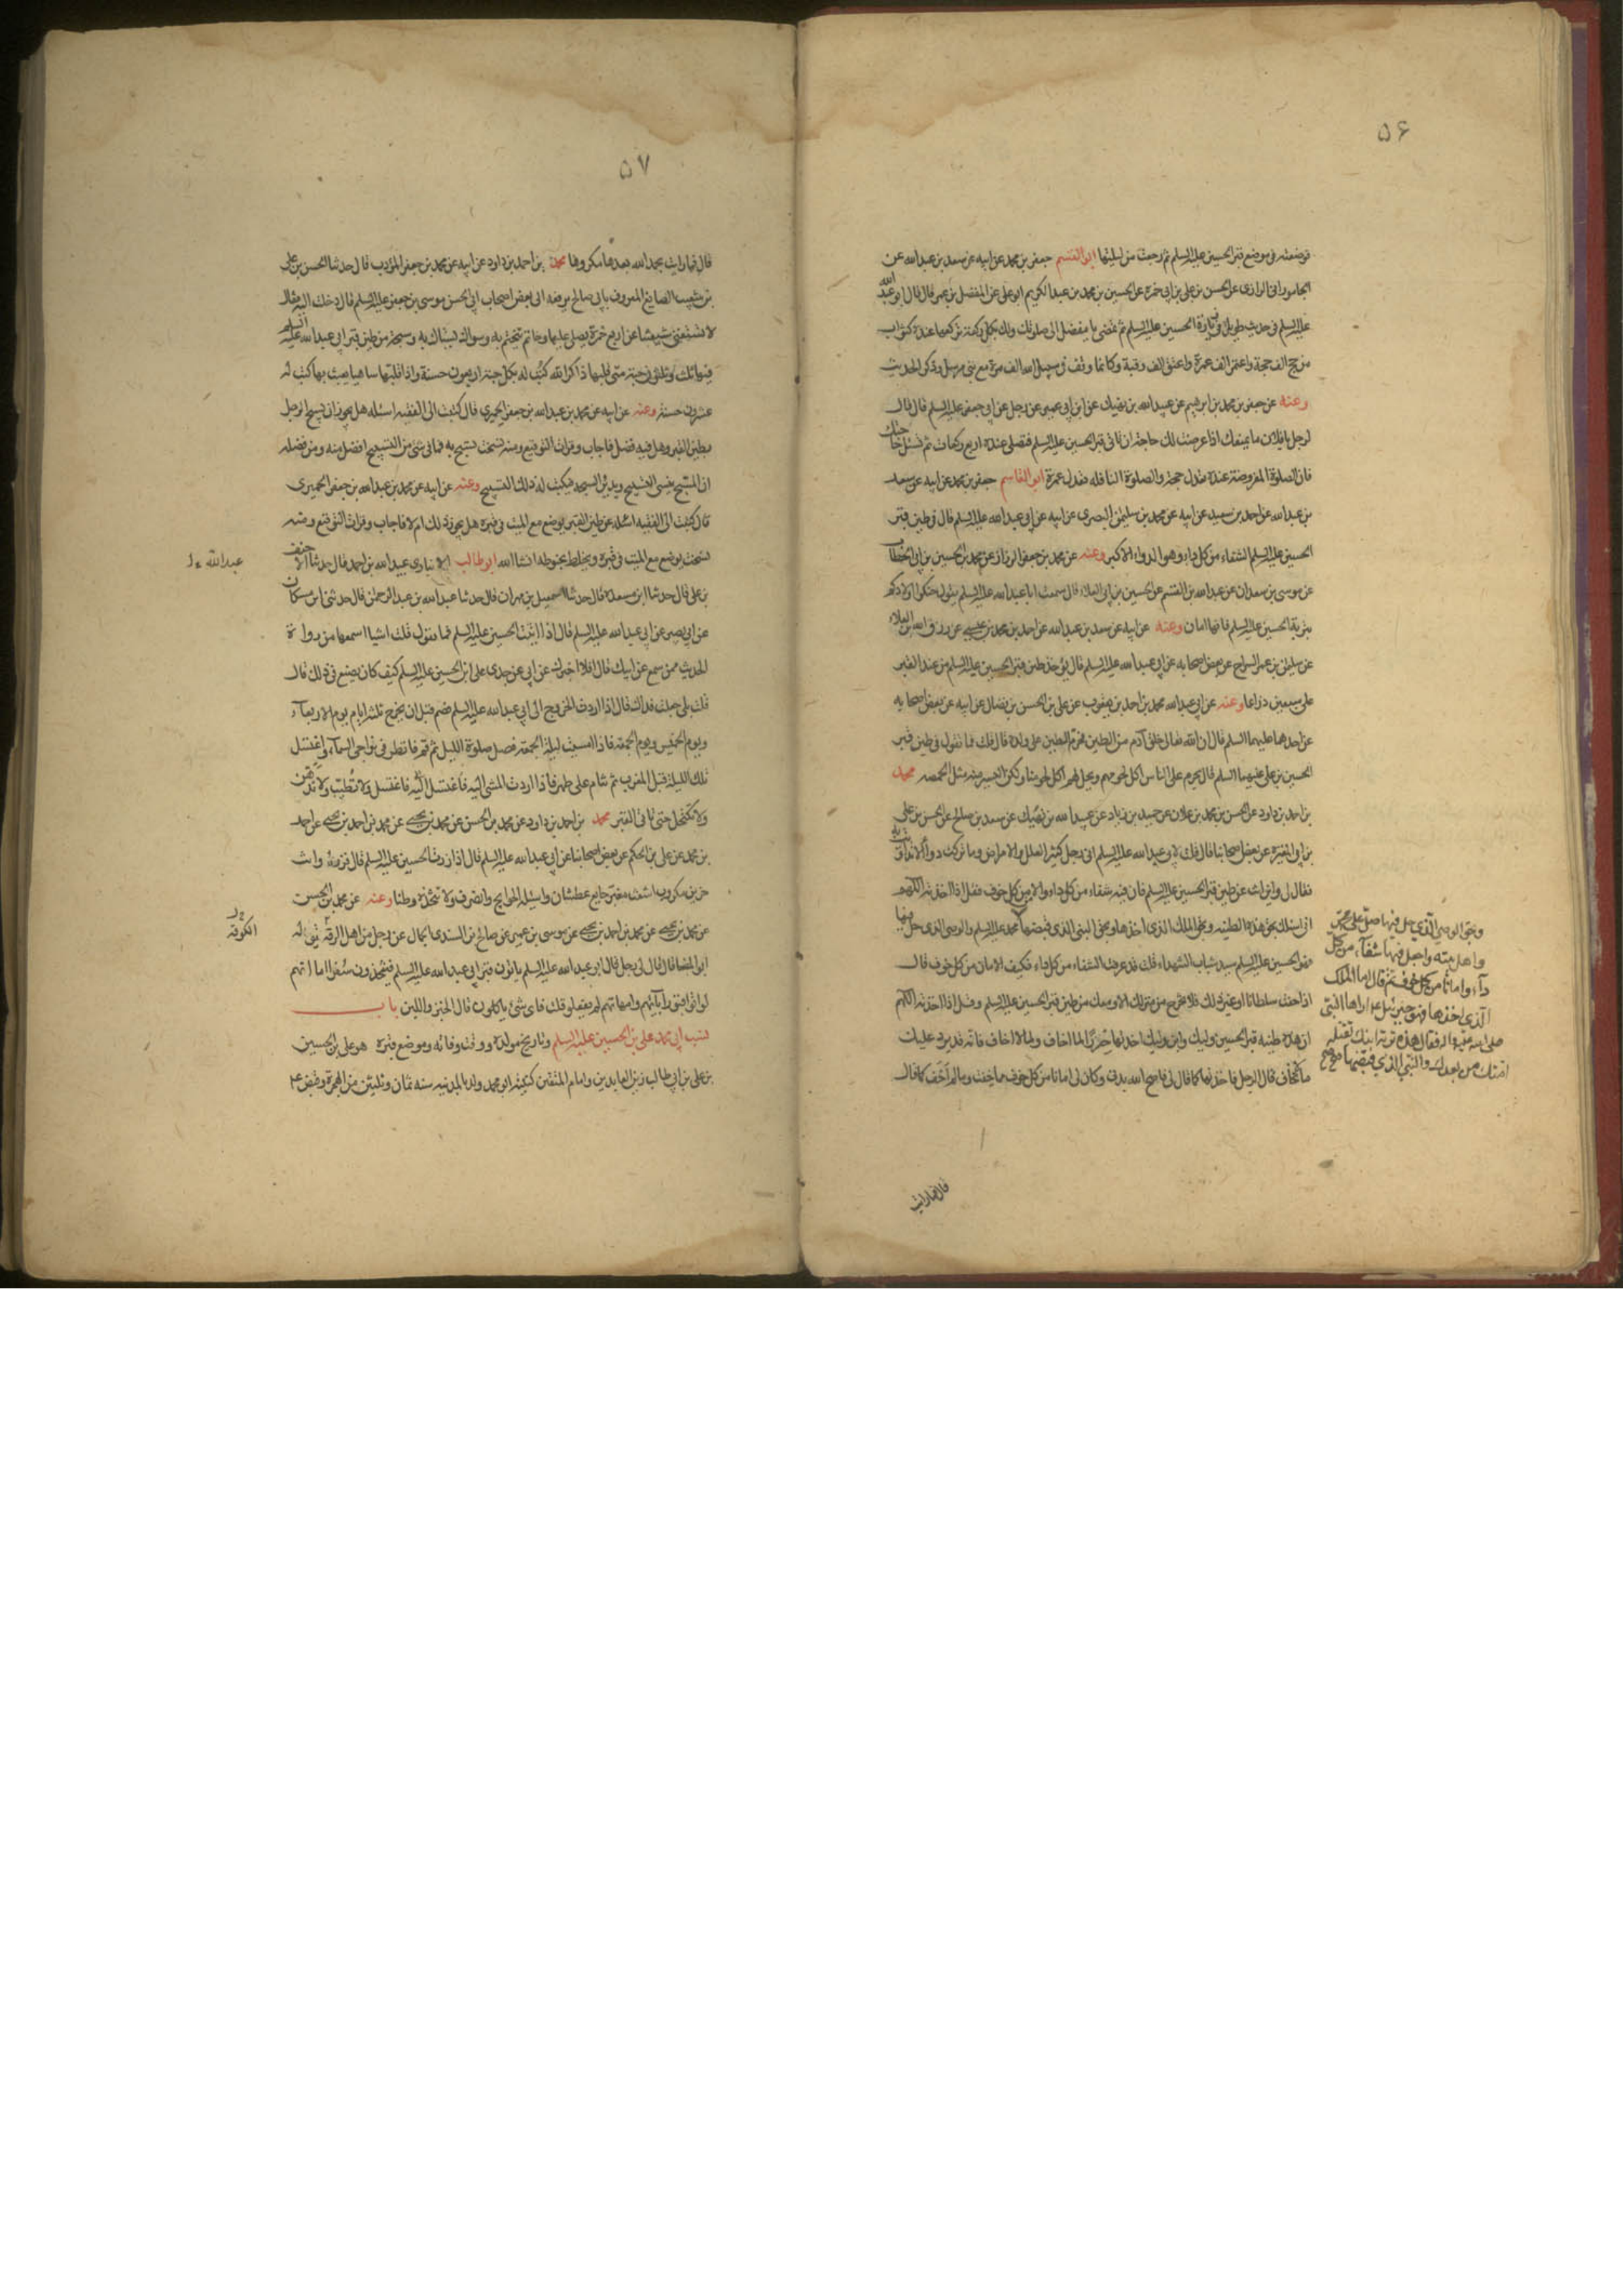 ۵۶
فوضعته فی موضع قبر الحسین علیه السلم ثم رجعت من لیلتها ابو القسم جعفر بن محمد عن ابیه عن سعد بن عبدالله عن
الجامورانی الرازی عن الحسن بن علی بن ابی حمزة عن الحسین بن محمد بن عبد الکریم ابو علی عن المفضل بن عمر قال قال ابو عبد الله
علیه السلم فی حدیث طویل فی زیارة الحسین علیه السلم ثم تمضی یا مفضل الی صلوتک ولک بکل رکعة ترکعها عنده کثواب
من حج الف حجة واعتمر الف عمرة واعتق الف رقبة وکانما وقف فی سبیل الله الف مرة مع نبی مرسل وذکر الحدیث
وعنه عن جعفر بن محمد بن ابرهیم عن عبید الله بن نهیک عن ابن ابی عمیر عن رجل عن ابی جعفر علیه السلم قال قال
لرجل یا فلان ما یمنعک اذا عرضت لک حاجة ان تاتی قبر الحسین علیه السلم فتصلی عنده اربع رکعات ثم تسئل حاجتک
فان الصلوة المفروضة عنده تعدل حجة والصلوة النافله تعدل عمرة ابو القاسم جعفر بن محمد عن ابیه عن سعد
بن عبدالله عن احمد بن سعید عن ابیه عن محمد بن سلیمن البصری عن ابیه عن ابی عبد الله علیه السلم قال فی طین قبر
الحسین علیه السلم الشفاء من کل داء وهو الدواء الاکبر وعنه عن محمد بن جعفر الرزاز عن محمد بن الحسین بن ابی الخطاب
عن موسی بن سعدان عن عبدالله بن القسم عن الحسین بن ابی العلاء قال سمعت ابا عبدالله علیه السلم یقول حنکوا اولادکم
بتربة الحسین علیه السلم فانها امان وعنه عن ابیه عن سعد بن عبدالله عن احمد بن محمد بن عیسی عن رزق الله بن العلاء
عن سلیمن بن عمر السراج عن بعض اصحابه عن ابی عبدالله علیه السلم قال یؤخذ طین قبر الحسین علیه السلم من عند القبر
علی سبعین ذراعا وعنه عن ابی عبدالله محمد بن احمد بن یعقوب عن علی بن الحسن بن فضال عن ابیه عن بعض اصحابه
عن احدهما علیهما السلم قال ان الله تعالی خلق آدم من الطین فحرم الطین علی ولده قال قلت فما تقول فی طین قبر
الحسین بن علی علیهما السلم قال یحرم علی الناس اکل لحومهم ویحل لهم اکل لحومنا ولکن الیسیر منه مثل الحمصه محمد
بن احمد بن داود عن الحسن بن محمد بن علان عن حمید بن زیاد عن عبید الله بن نهیک عن سعد بن صالح عن الحسن بن علی
بن ابی المغیرة عن بعض اصحابنا قال قلت لابی عبدالله علیه السلم انی رجل کثیر العلل والامراض وما ترکت دواء الا تداویت به
فقال لی واین انت عن طین قبر الحسین علیه السلم فان فیه شفاء من کل داء والامن من کل خوف فقل اذا اخذته اللهم
انی اسئلک بحق هذه الطینه وبحق الملک الذی اخذها وبحق النبی الذی قبضها محمد علیه السلم والوصی الذی حل فیها
هو الحسین علیه السلم سید شباب الشهداء قلت قد عرفت الشفاء من کل داء فکیف الامان من کل خوف قال
اذا خفت سلطانا او غیر ذلک فلا تخرج من منزلک الا ومعک من طین قبر الحسین علیه السلم وقل اذا اخذته اللهم
ان هذه طینة قبر الحسین ولیک وابن ولیک اخذتها حرزا لما اخاف ولما لا اخاف فانه قد یرد علیک
ما لا تخاف قال الرجل فاخذتها کما قال لی فاصح الله بدنی وکان لی امانا من کل خوف مما خفت وما لم اخف کما قال
وبحق الوصی الذی حل فیها صل علی محمد
واهل بیته واجعل فیها شفاء من کل
داء وامانا من کل خوف ثم قال اما الملک
الذی اخذها فهو جبرئیل ع اراها النبی
صلی الله علیه واله فقال هذه تربة ابنک تقتله
امتک من بعدک والنبی الذی قبضها صح صح
قال فما رایت
۵۷
قال فما رایت بحمد الله بعدها مکروها محمد بن احمد بن داود عن ابیه عن محمد بن جعفر المؤدب قال حدثنا الحسن بن علی
بن شعیب الصایغ المعروف بابی صالح یرفعه الی بعض اصحاب ابی الحسن موسی بن جعفر علیه السلم قال دخلت الیه فقال
لا تستغنی شیعتنا عن اربع خمرة یصلی علیها وخاتم یتختم به وسواک یستاک به وسبحة من طین قبر ابی عبدالله علیه السلم
فیها ثلث وثلثون حبة متی قلبها ذاکرا لله کتب له بکل حبة اربعون حسنة واذا قلبها ساهیا یعبث بها کتب له
عشرون حسنة وعنه عن ابیه عن محمد بن عبدالله بن جعفر الحمیری قال کتبت الی الفقیه اسئله هل یجوز ان یسبح الرجل
بطین القبر وهل فیه فضل فاجاب وقرات التوقیع ومنه نسخت تسبح به فما فی شئ من التسبیح افضل منه ومن فضله
ان المسبح ینسی التسبیح ویدیر السبحه فیکتب له ذلک التسبیح وعنه عن ابیه عن محمد بن عبدالله بن جعفر الحمیری
قال کتبت الی الفقیه اسئله عن طین القبر یوضع مع المیت فی قبره هل یجوز ذلک ام لا فاجاب وقرات التوقیع ومنه
نسخت یوضع مع المیت فی قبره ویخلط بحنوطه انشاالله ابو طالب الانباری عبید الله بن احمد قال حدثنا الاحنف
بن علی قال حدثنا ابن مسعدة قال حدثنا اسمعیل بن مهران قال حدثنا عبدالله بن عبد الرحمان قال حدثنی ابن مسکان
عن ابی بصیر عن ابی عبدالله علیه السلم قال اذا اتیت الحسین علیه السلم فما تقول قلت اشیا اسمعها من رواة
الحدیث ممن سمع عن ابیک قال افلا اخبرک عن ابی عن جدی علی ابن الحسین علیه السلم کیف کان یصنع فی ذلک قال
قلت بلی جعلت فداک قال اذا اردت الخروج الی ابی عبدالله علیه السلم فصم قبل ان تخرج ثلثة ایام یوم الاربعاء
ویوم الخمیس ویوم الجمعة فاذا امسیت لیلة الجمعة فصل صلوة اللیل ثم قم فانظر فی نواحی السماء واغتسل
تلک اللیلة قبل المغرب ثم تنام علی طهر فاذا اردت المشی الیه فاغتسل ولا تطیب ولا تدهن
ولا تکتحل حتی تاتی القبر محمد بن احمد بن داود عن محمد بن الحسن عن محمد بن یحیی عن محمد بن احمد بن یحیی عن احمد
بن محمد عن علی بن الحکم عن بعض اصحابنا عن ابی عبدالله علیه السلم قال اذا زرت الحسین علیه السلم قال فزره وانت
حزین مکروب اشعث مغبر جایع عطشان واسئله الحوایج وانصرف ولا تتخذه وطنا وعنه عن محمد بن الحسن
عن محمد بن یحیی عن محمد بن احمد بن یحیی عن موسی بن عمر عن صالح بن السندی الجمال عن رجل من اهل الرقة یقال له
ابو المضا قال قال لی رجل قال ابو عبدالله علیه السلم یاتون قبر ابی عبدالله علیه السلم فیتخذون سفرا اما انهم
لو اتوا قبور آبائهم وامهاتهم لم یفعلو قلت فای شئ یاکلون قال الخبز واللبن باب
نسب ابی محمد علی بن الحسین علیه السلم وتاریخ مولده ووقت وفاته وموضع قبره هو علی بن الحسین
بن علی بن ابی طالب زین العابدین وامام المتقین کنیته ابو محمد ولد بالمدینه سنه ثمان وثلثین من الهجرة وقبض ع
عبدالله
الکوفه